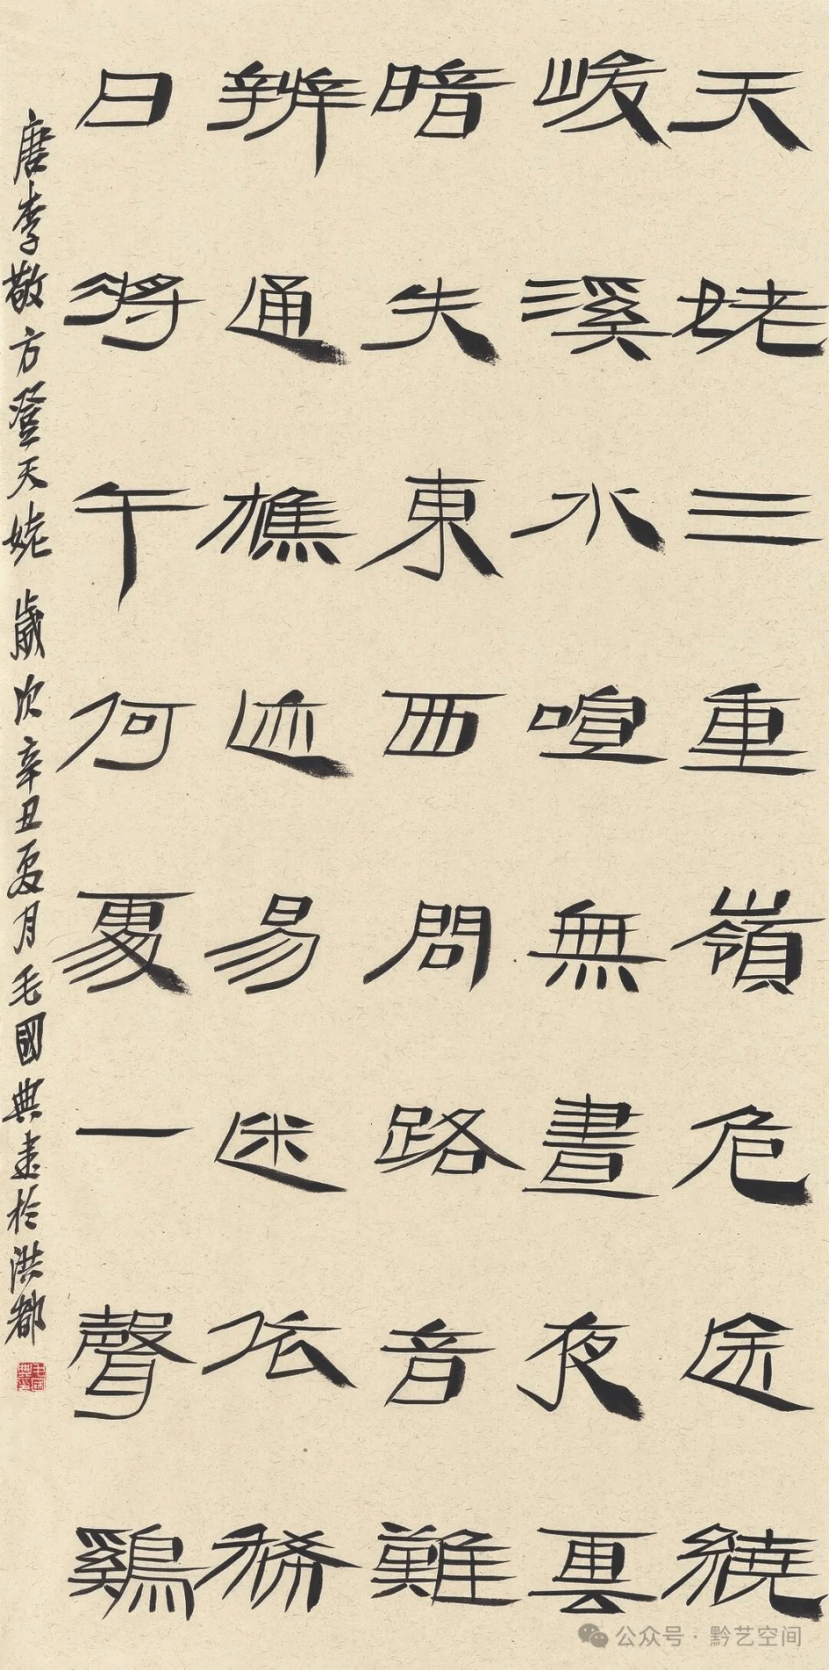 天姥三重嶺危途繞
峻溪水喧無晝夜雲
暗失東西問路音難
辨通樵迹易迷依稀
日將午何處一聲鷄
唐李敬方登天姥 歲次辛丑夏月毛國典書於洪都
公众号·黔艺空间